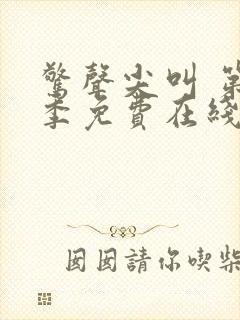 驚聲尖叫 第
季免費在綫
囡囡請你喫柴